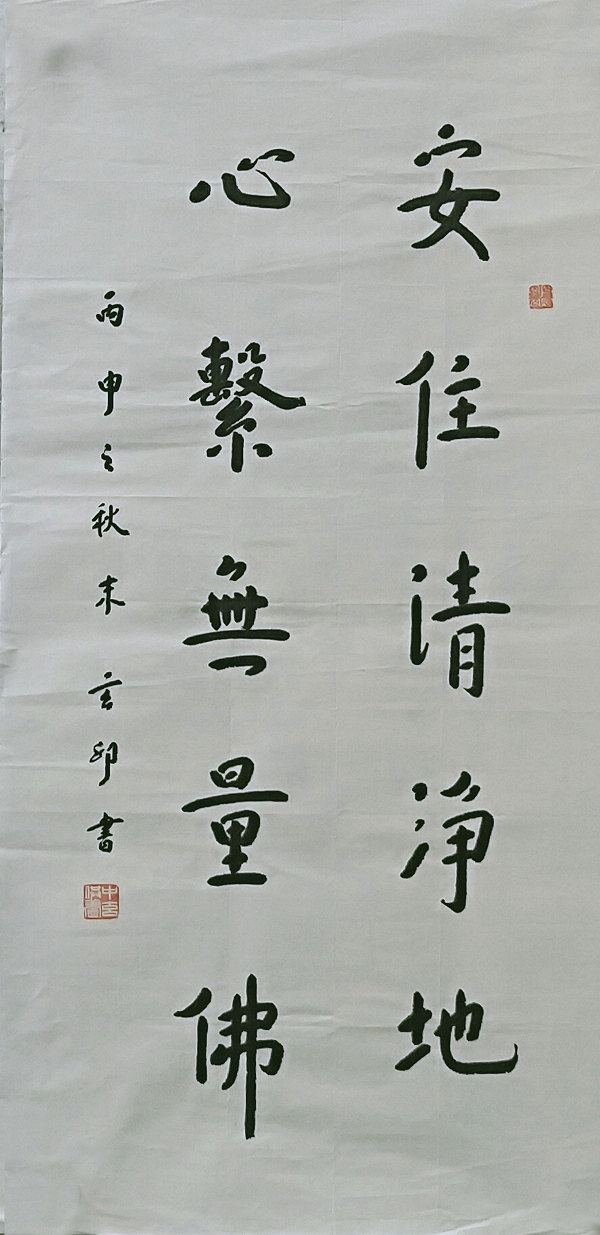 安住清净地
心繫無量佛
丙申之秋末 玄卯書